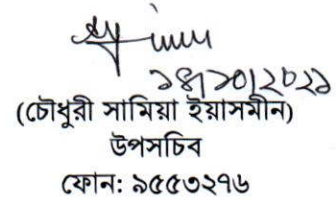 ১৪/১০/২০২১
(চৌধুরী সামিয়া ইয়াসমীন)
উপসচিব
ফোন: ৯৫৫৩২৭৬